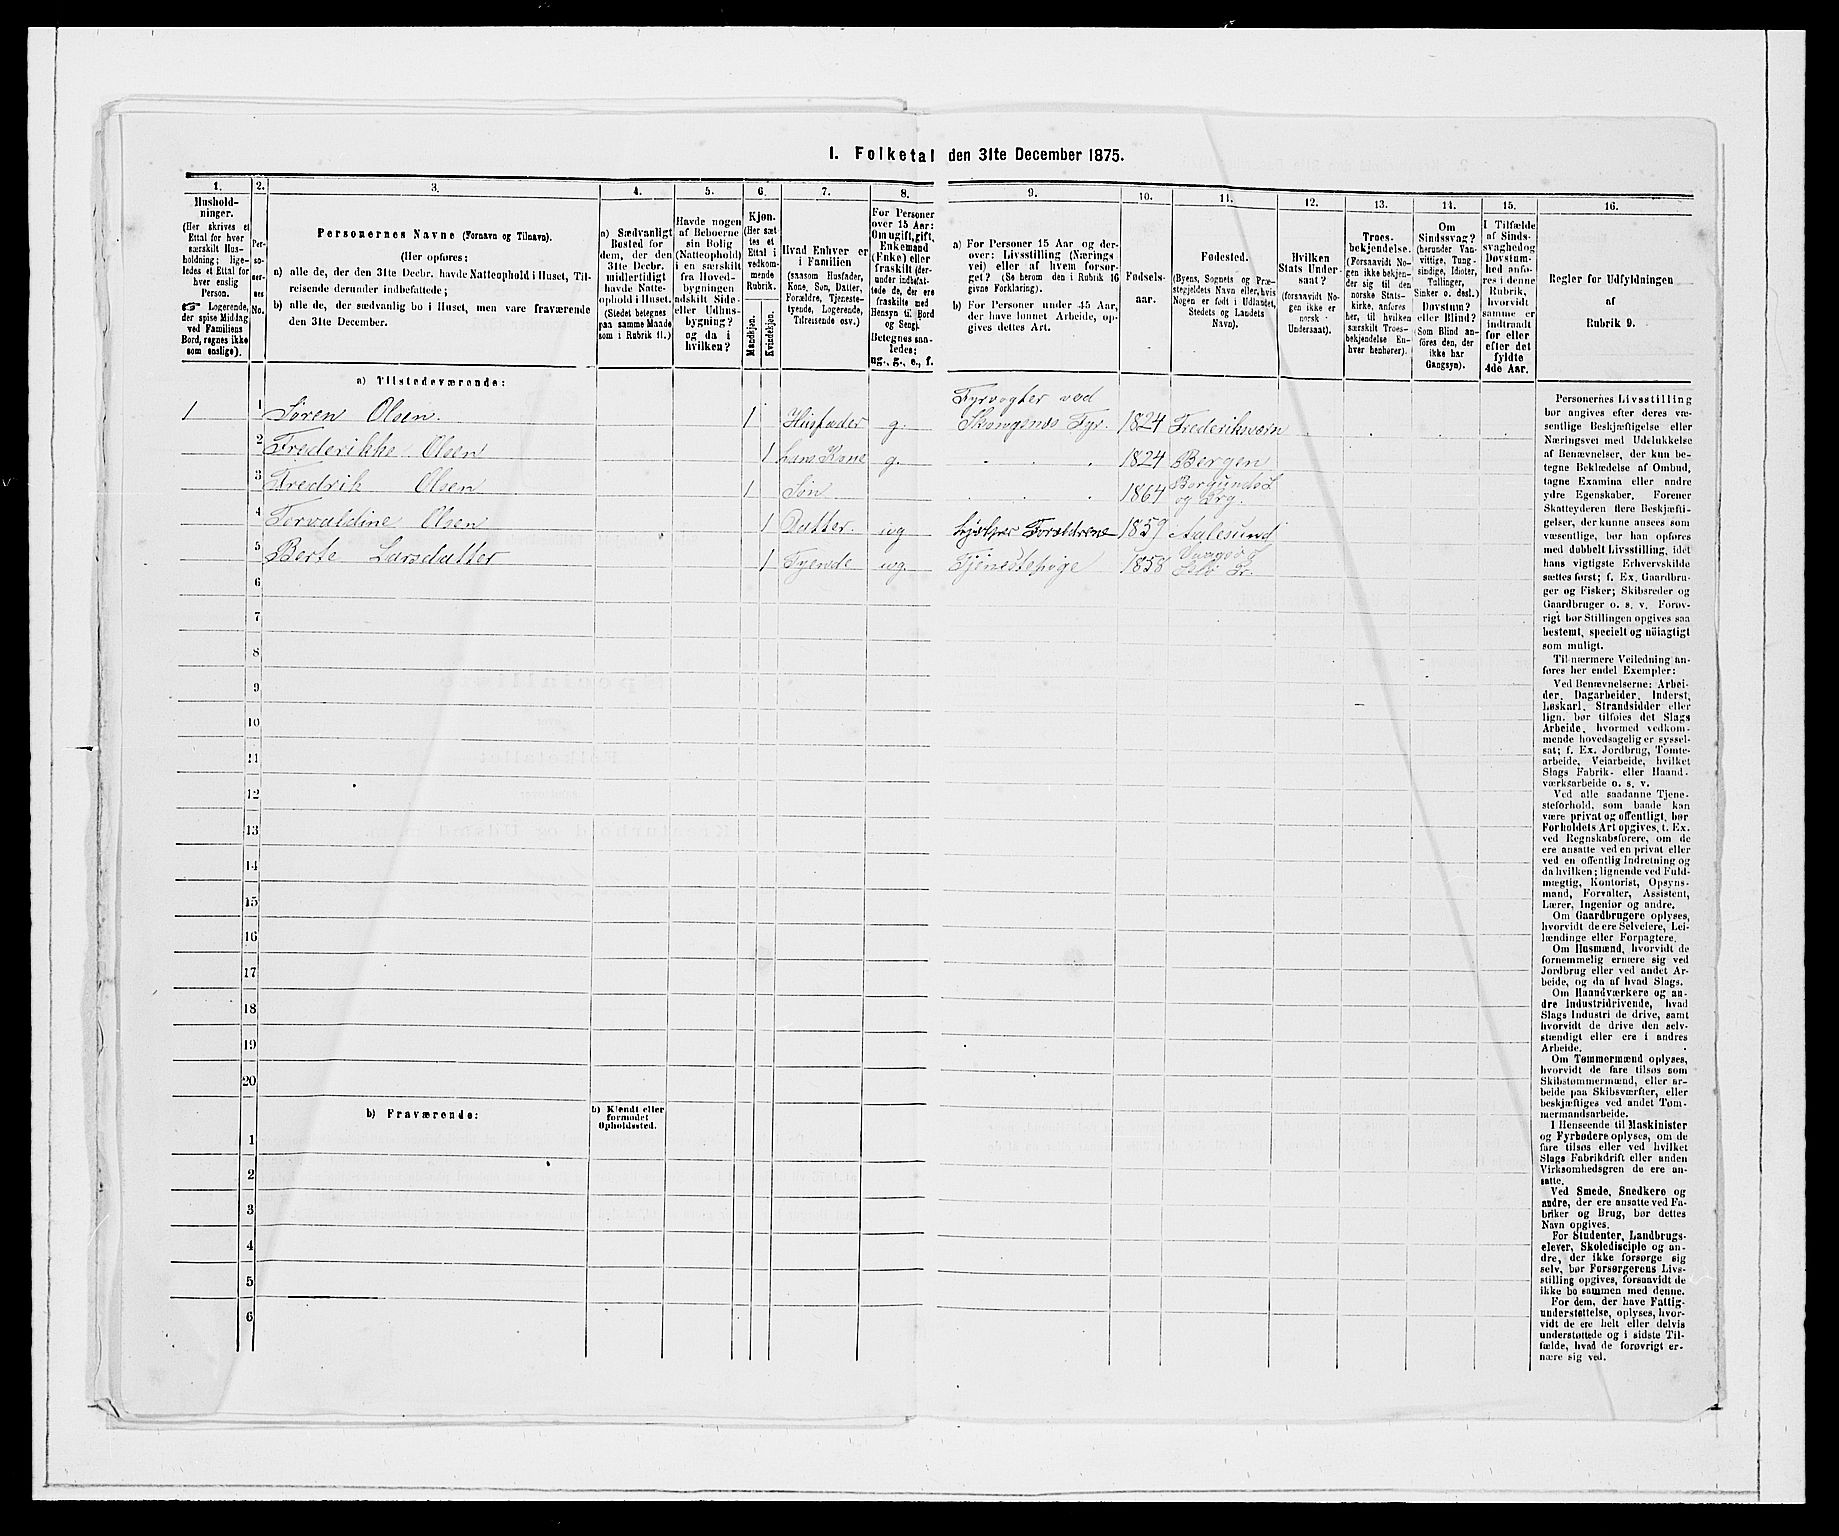 I. Folketal den 31te December 1875.
1.
Hushold-
ninger.
(Her skrives et
Ettal for hver
særskilt Hus-
holdning; lige-
ledes et Ettal for
hver enslig
Person.
☞ Logerende,
der spise Middag
ved Familiens
Bord, regnes ikke
som enslige).
2.
Per-
so-
ner-
nes
No.
3.
Personernes Navne (Fornavn og Tilnavn).
(Her opføres:
a) alle de, der den 31te Decbr. havde Natteophold i Huset, Til-
reisende derunder indbefattede;
b) alle de, der sædvanlig bo i Huset, men vare fraværende
den 31te December.
4.
a) Sædvanligt
Bosted for
dem, der den
31te Decbr.
midlertidigt
havde Natte-
ophold i Huset.
(Stedet betegnes
paa samme Maade
som i Rubrik 11.)
5.
Havde nogen
af Beboerne
sin Bolig
(Natteophold)
i en særskilt
fra Hoved-
bygningen
adskilt Side-
eller Udhus-
bygning?
og da i
hvilken?
6.
Kjøn.
(Her sæt-
tes et
Ettal i
vedkom-
mende
Rubrik.
Mandkjøn.
Kvindekjøn.
7.
Hvad Enhver er
i Familien
(saasom Husfader,
Kone, Søn, Datter,
Forældre, Tjeneste-
tyende, Logerende,
Tilreisende osv.)
8.
For Personer
over 15 Aar:
Om ugift, gift,
Enkemand
(Enke) eller
fraskilt (der-
under indbefat-
tede de, der ere
fraskilte med
Hensyn til Bord
og Seng).
Betegnes saa-
ledes:
ug., g., e., f.
9.
a) For Personer 15 Aar og der-
over: Livsstilling (Nærings-
vei) eller af hvem forsør-
get? (Se herom den i Rubrik 16
givne Forklaring).
b) For Personer under 15 Aar,
der have lønnet Arbeide, op-
gives dettes Art.
10.
Fødsels-
aar.
11.
Fødested.
(Byens, Sognets og Præ-
stegjeldets Navn eller, hvis
Nogen er født i Udlandet,
Stedets og Landets
Navn).
12.
Hvilken
Stats Under-
saat?
(forsaavidt No-
gen ikke er
norsk
Undersaat).
13.
Troes-
bekjendelse.
(Forsaavidt No-
gen ikke bekjen-
der sig til den
norske Stats-
kirke, anføres
her, til hvilken
særskilt Troes-
bekjendelse En-
hver henhører).
14.
Om
Sindssvag?
(herunder Van-
vittige, Tung-
sindige, Idioter,
Tullinger,
Sinker o. desl.)
Døvstum?
eller Blind?
(Som Blind an-
føres den, der
ikke har
Gangsyn).
15.
I Tilfælde
af Sinds-
svaghed og
Døvstum-
hed anfø-
res i denne
Rubrik,
hvorvidt
samme er
indtraadt
før eller
efter det
fyldte
4de Aar.
16.
Regler for Udfyldningen
af
Rubrik 9.
a) Tilstedeværende:
1 1 Søren Olsen. 1 Husfader g. Fyrvogter ved
Skongsnæs Fyr. 1824 Frederiksværn
2 Frederikke Olsen 1 hans Kone g. 1824 Bergen
3 Fredrik Olsen 1 Søn 1864 Borgunds S
og Prg.
4 Torvaldine Olsen 1 Datter. ug hjælper Forældrene 1859 Aalesund
5 Berte Larsdatter 1 Tyende ug. Tjenestepige 1858
6
7
8
9
10
11
12
13
14
15
16
17
18
19
20
b) Fraværende:
b) Kjendt eller
formodet
Opholdssted.
1
2
3
4
5
6
Personernes Livsstilling
bør angives efter deres væ-
sentlige Beskjæftigelse eller
Næringsvei med Udelukkelse
af Benævnelser, der kun be-
tegne Beklædelse af Ombud,
tagne Examina eller andre
ydre Egenskaber. Forener
Skatteyderen flere Beskjæfti-
gelser, der kunne ansees som
væsentlige, bør han opføres
med dobbelt Livsstilling, idet
hans vigtigste Erhvervskilde
sættes først; f. Ex. Gaardbru-
ger og Fisker; Skibsreder og
Gaardbruger o. s. v. Forøv-
rigt bør Stillingen opgives saa
bestemt, specielt og nöiagtigt
som muligt.
Til nærmere Veiledning an-
føres her endel Exempler:
Ved Benævnelserne: Arbei-
der, Dagarbeider, Inderst,
Løskarl, Strandsidder eller
lign. bør tilføies det Slags
Arbeide, hvormed vedkom-
mende hovedsagelig er syssel-
sat; f. Ex. Jordbrug, Tomte-
arbeide, Veiarbeide, hvilket
Slags Fabrik- eller Haand-
værksarbeide o. s. v.
Ved alle saadanne Tjene-
steforhold, som baade kan
være privat og offentligt, bør
Forholdets Art opgives, t. Ex.
ved Regnskabsførere, om de
ere ansatte ved en privat eller
ved en offentlig Indretning og
da hvilken; lignende ved Fuld-
mægtig, Kontorist, Opsyns-
mand, Forvalter, Assistent,
Lærer, Ingeniør og andre.
Om Gaardbrugere oplyses,
hvorvidt de ere Selveiere, Lei-
lændinge eller Forpagtere.
Om Husmænd, hvorvidt de
fornemmelig ernære sig ved
Jordbrug eller ved andet Ar-
beide, og da af hvad Slags.
Om Haandværkere og an-
dre Industridrivende, hvad
Slags Industri de drive, samt
hvorvidt de drive den selv-
stændigt eller ere i andres
Arbeide.
Om Tømmermænd oplyses,
hvorvidt de fare tilsøs som
Skibstømmermænd, eller ar-
beide paa Skibsværfter, eller
beskjæftiges ved andet Tøm-
mermandsarbeide.
I Henseende til Maskinister
og Fyrbødere oplyses, om de
fare tilsøs eller ved hvilket
Slags Fabrikdrift eller anden
Virksomhedsgren de ere an-
satte.
Ved Smede, Snedkere og
andre, der ere ansatte ved Fa-
briker og Brug, bør dettes
Navn opgives.
For Studenter, Landbrugs-
elever, Skoledisciple og an-
dre, der ikke forsørge sig
selv, bør Forsørgerens Livs-
stilling opgives, forsaavidt de
ikke bo sammen med denne.
For dem, der have Fattig-
understøttelse, oplyses, hvor-
vidt de ere helt eller delvis
understøttede og i sidste Til-
fælde, hvad de forøvrigt er-
nære sig ved.